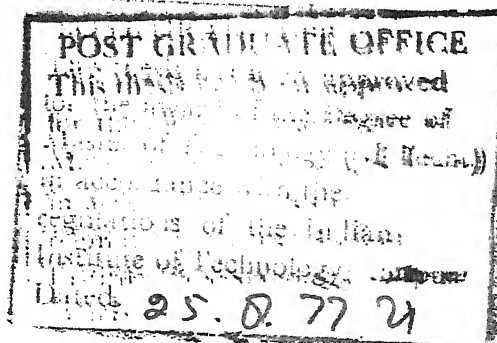 POST GRADUATE OFFICE
This thesis approved
for the award of the Degree of
of
in accordance with the
regulations of the Indian
Institute of Technology
Dated. 25. 8. 77 21